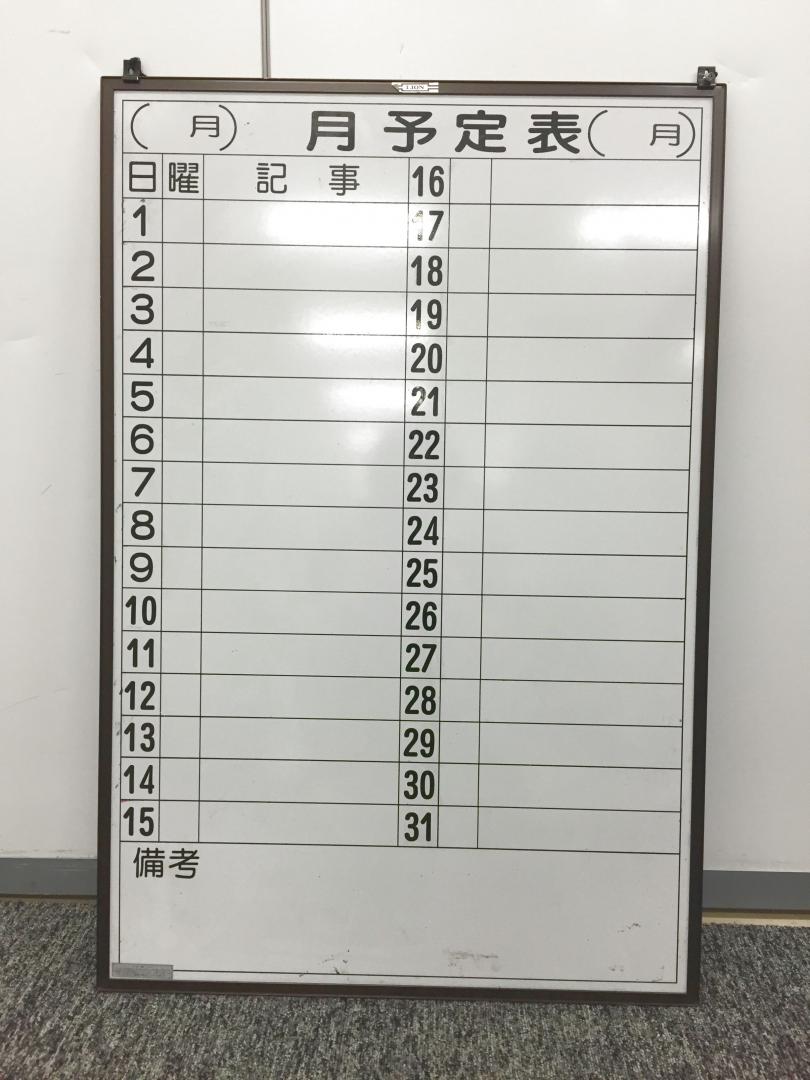 LION
( 月) 月予定表 ( 月)
日 曜 記事 16
1 17
2 18
3 19
4 20
5 21
6 22
7 23
8 24
9 25
10 26
11 27
12 28
13 29
14 30
15 31
備考